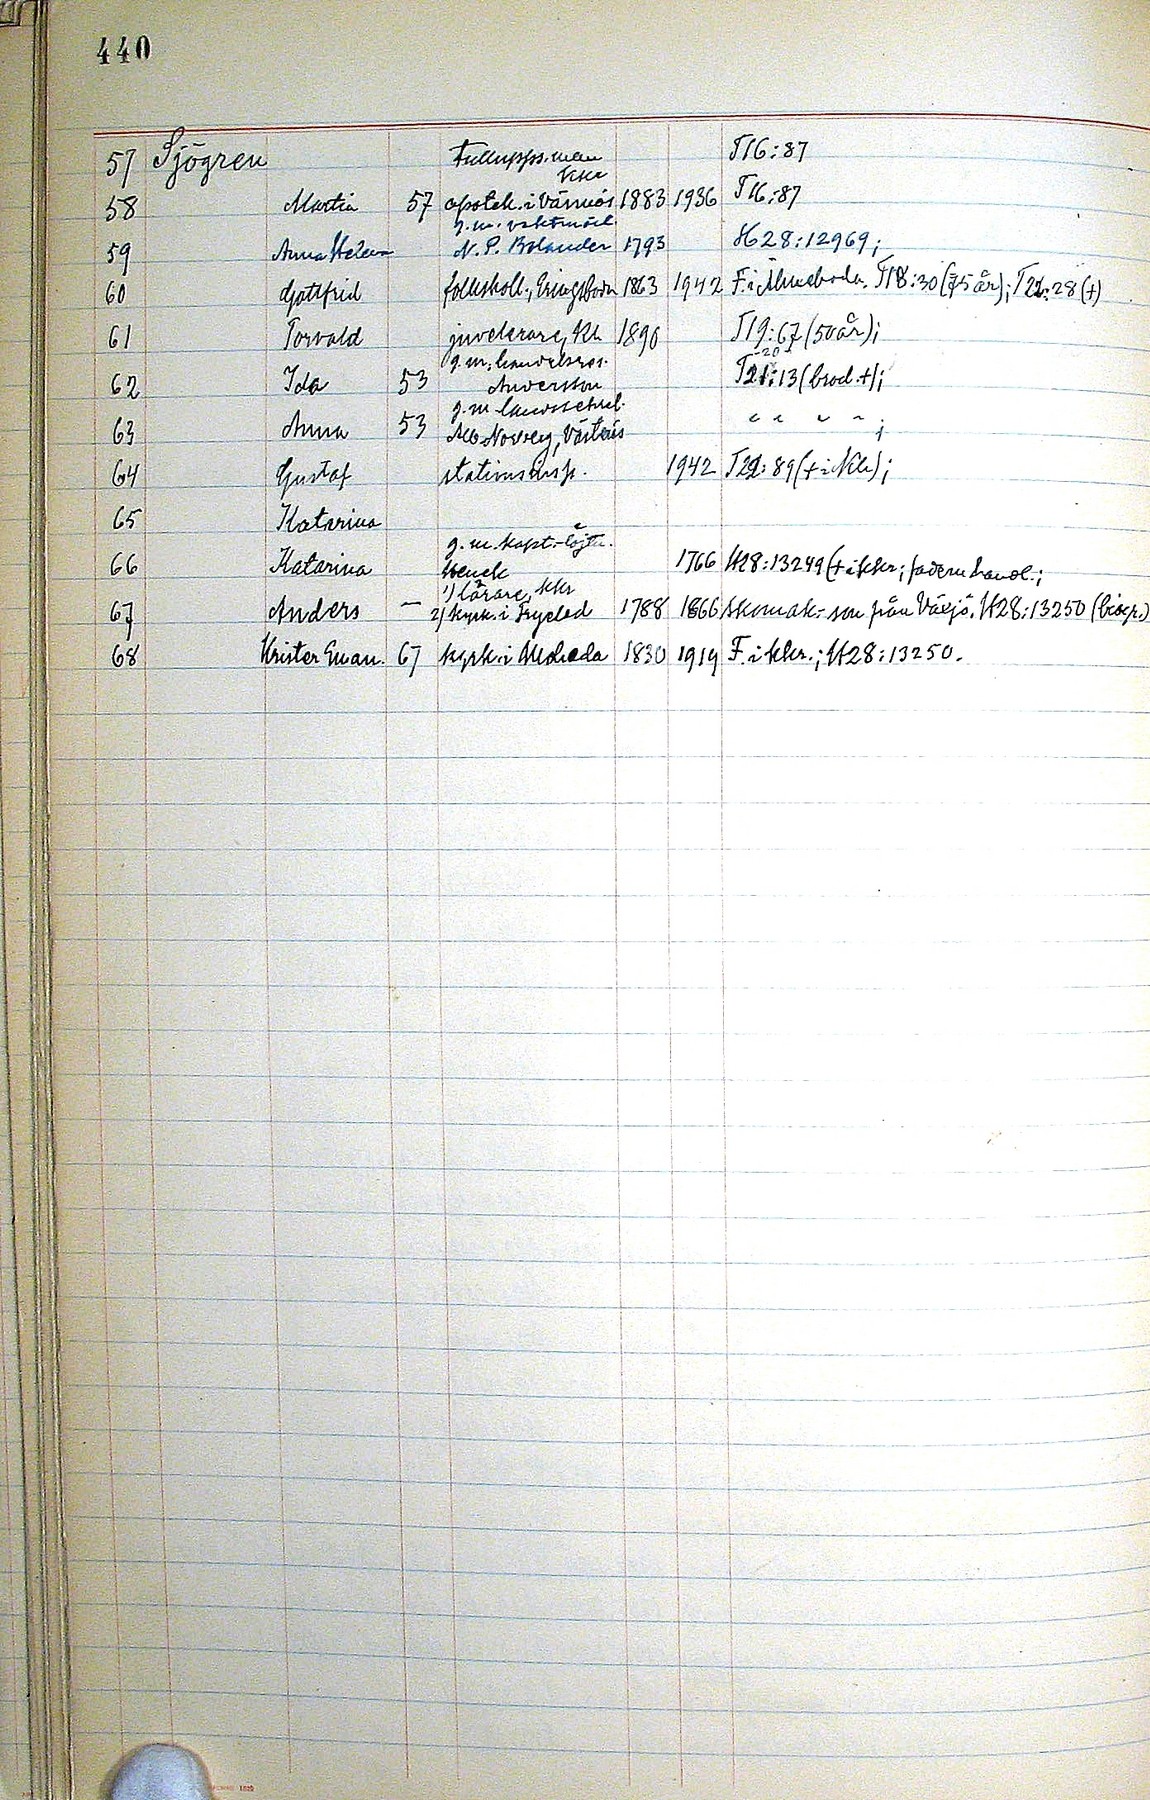 440
57 Sjögren Tulluppsman T16:87
Kkr
58 Martin 57 apotek. i Värnamo 1883 1936 T16:87
g.m. vaktmäst.
59 Anna Helena N. P. Bolander 1793 H28:12969;
60 Gottfrid folkskoll., Eringsboda 1863 1942 F. i Älmeboda. T18:30 (75 år); T21:28 (+)
61 Torvald juvelerare, Kh 1890 T19:67 (50 år);
g.m. handelsres. -20
62 Ida 53 Andersson T21:13 (brod. +);
g.m. landssekret.
63 Anna 53 Alb Norberg, Västerås " " " " ;
64 Gustaf stationsinsp. 1942 T21:89 (+ i Kh);
65 Katarina
g.m. kapt.-löjtn.
66 Katarina Wenck 1766 H28:13249 (+ i kkr; fadern handl.;
1) lärare, kkr
67 Anders — 2) kyrk. i Tryeled 1788 1866 skomak.-son från Växjö. H28:13250 (biogr.)
68 Krister Eman. 67 kyrk. i 1830 1919 F. i kkr.; H28:13250.